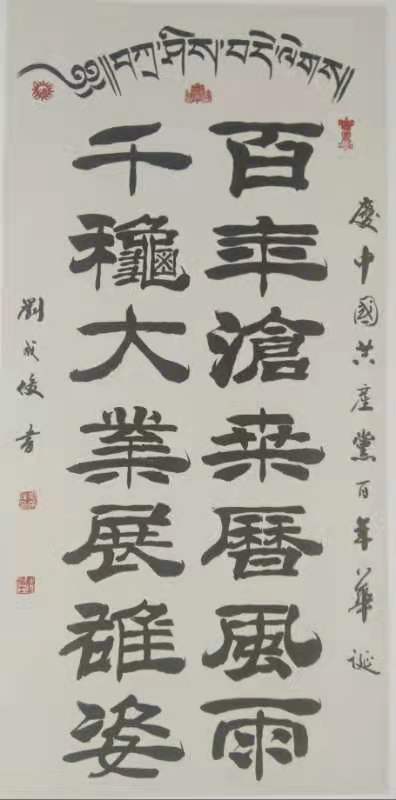 ༄༅།།བཀྲ་ཤིས་བདེ་ལེགས།།
慶中國共產黨百年華誕
百年滄桒曆風雨
千龝大業展雄姿
劉成俊書